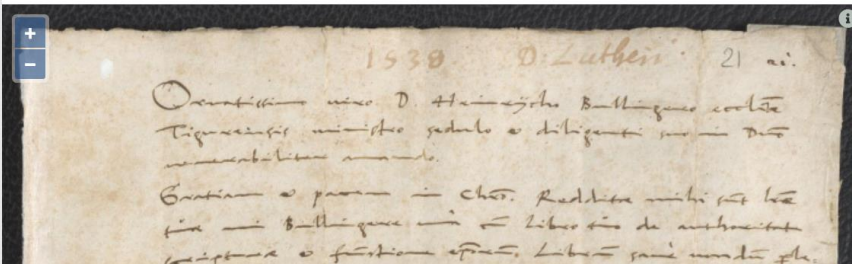 1538 D: Lutheri 21 21.
Ornatissimo viro D. Heinrycho Bullingero ecclēae
Tigurinensis ministro sedulo et diligenti suo in Dnō
venerabiliter amando.
Gratiam et pacem in Chrō. Redditae mihi sunt lrae
tuae mi Bullingere unā cū Libro tuo de authoritate
scripturae et functione epōrum. Librum sane nondū